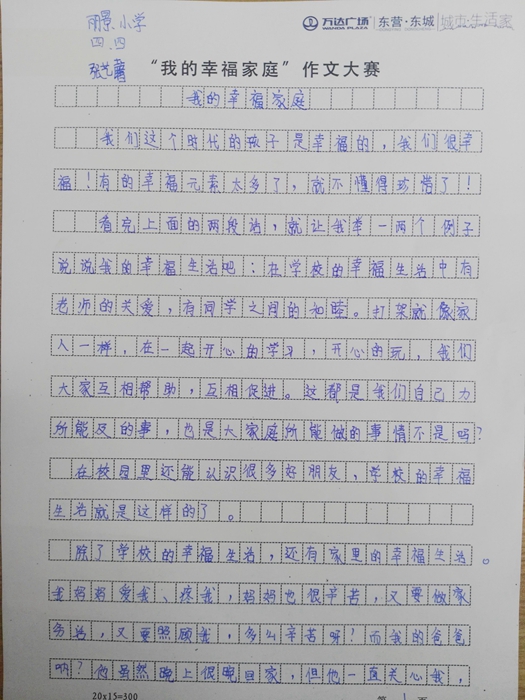 丽景小学
万达广场 WANDA PLAZA 东营·东城 城市·生活家
四.四
张艺
“我的幸福家庭”作文大赛
我的幸福家庭
我们这个时代的孩子是幸福的,我们很幸
福!有的幸福元素太多了,就不懂得珍惜了!
看完上面的两段话,就让我举一两个例子
说说我的幸福生活吧:在学校的幸福生活中有
老师的关爱,有同学之间的和睦。打架就像家
人一样,在一起开心的学习,开心的玩,我们
大家互相帮助,互相促进。这都是我们自己力
所能及的事,也是大家庭所能做的事情不是吗?
在校园里还能认识很多好朋友,学校的幸福
生活就是这样的了。
除了学校的幸福生活,还有家里的幸福生活。
我妈妈爱我、疼我,妈妈也很辛苦,又要做家
务活,又要照顾我,多么辛苦呀!而我的爸爸
呐?他虽然晚上很晚回家,但他一直关心我,
20x15=300 第 1 页